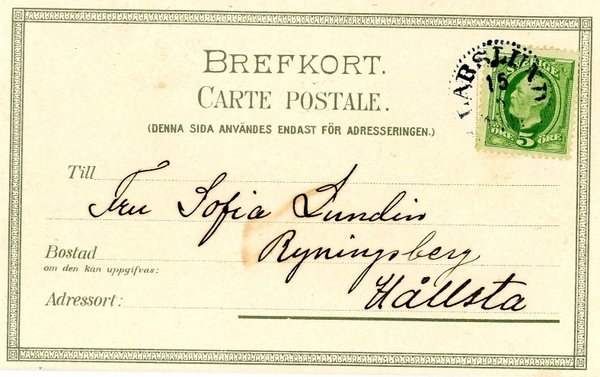 BREFKORT.
CARTE POSTALE.
(DENNA SIDA ANVÄNDES ENDAST FÖR ADRESSERINGEN.)
LARSLUND
15
SVERIGE
5
ÖRE
Till
Fru Sofia Lundin
Bostad
om den kan uppgifvas:
Ryningsberg
Adressort:
Hållsta